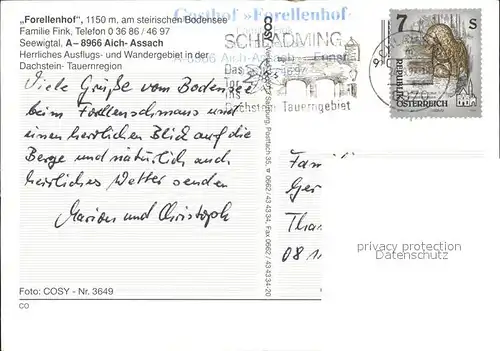 „Forellenhof", 1150 m, am steirischen Bodensee
Familie Fink, Telefon 0 36 86 / 46 97
Seewigtal, A-8966 Aich-Assach
Herrliches Ausflugs- und Wandergebiet in der
Dachstein- Tauernregion
Viele Grüße vom Bodensee
beim Forellenschmaus und
einen herrlichen Blick auf die
Berge und natürlich auch
herrliches Wetter senden
Marion und Christoph
Foto: COSY - Nr. 3649
CO
COSY
Salzburg, Postfach 35, 0662/43 43 34, Fax 0662/43 43 34-20
Gasthof »Forellenhof«
SCHLADMING
Das
Tor
ins
Dachstein-Tauerngebiet
7 S
REPUBLIK
ÖSTERREICH
Fam
Ger
Tha
08 1
privacy protection
Datenschutz